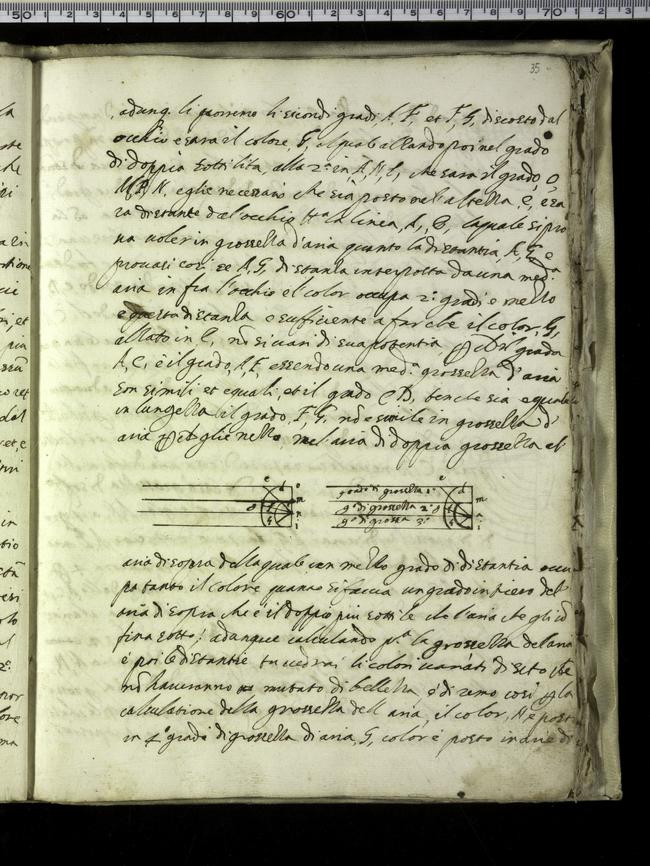 35
adunq. li porremo li secondi gradi, A, F, et F, G, discosto dal
occhio e sara il colore, G, il quale alzando poi nel grado
di doppia sottilita, alla 2ª in A, M, L, che sara il grado, O,
N, egli e necessario che sia posto nell'altezza, C, e sa
ra distante dal occhio tta la linea, A, B, laquale si pro
ua uoler in grossezza d'aria quanto la distantia, A, G, e
prouasi cosi se A, G, distanza interposta da una med.ª
aria infra l'occhio el color occupa 2 gradi e mezzo
e questa distanza e sufficiente a far che il color, G,
alzato in C, nō si uari di sua potentia il grado
A, C, e il grado, A, F, essendo una med.ª grossezza d'aria
son simili et equali, et il grado C D, benche sia equale
in lungezza al grado, F, G, nō e simile in grossezza d'
aria egli e nell'aria di doppia grossezza al
e d o
m
n
i
e d
grado di grossezza 1º
gº di grossezza 2º
gº di grossezza 3º
m
n
i
aria di sopra della quale un mezzo grado di distantia occu
pa tanto il colore quanto si faccia un grado intiero del
aria di sopra che e il doppio piu sottile che l'aria che gli cō
fina sotto; adunque calculando pª la grossezza del aria
e poi le distantie tu uedrai li colori uariati di sito che
nō haueranno mutato di bellezza, e diremo cosi pla
calculatione della grossezza dell aria, il color, A, e posto
in 4º gradi di grossezza di aria, G, color e posto in aria di